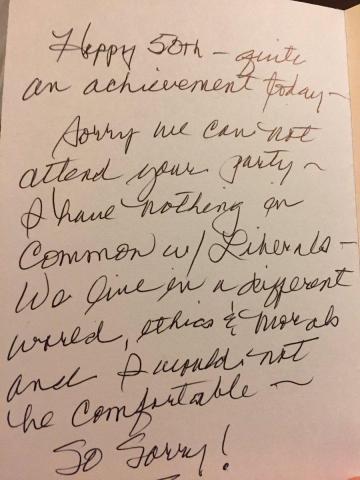 Happy 50th - quite
an achievement today -
Sorry we can not
attend your party ~
I have nothing in
Common w/ Liberals -
We live in a different
world, ethics & morals
and I would not
be comfortable ~
So Sorry!